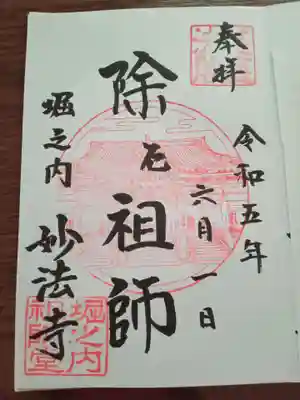 奉拝
令和五年
六月一日
除厄祖師
堀之内
妙法寺
堀之内
祖師堂